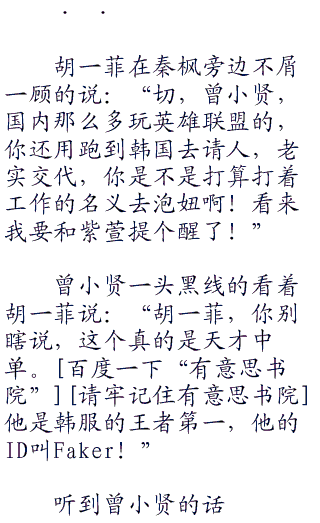 . .
胡一菲在秦枫旁边不屑
一顾的说：“切，曾小贤，
国内那么多玩英雄联盟的，
你还用跑到韩国去请人，老
实交代，你是不是打算打着
工作的名义去泡妞啊！看来
我要和紫萱提个醒了！”
曾小贤一头黑线的看着
胡一菲说：“胡一菲，你别
瞎说，这个真的是天才中
单。[百度一下“有意思书
院”][请牢记住有意思书院]
他是韩服的王者第一，他的
ID叫Faker！”
听到曾小贤的话